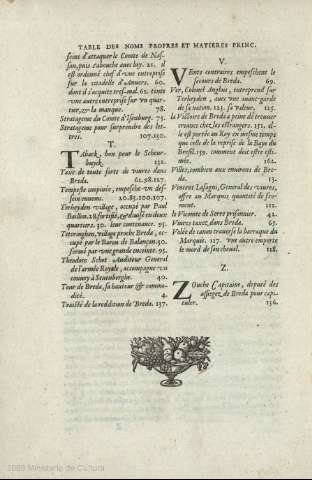 TABLE DES NOMS PROPRES ET MATIERES PRINC.
feint d'attaquer le Comte de Nas-
sau, puis s'abouche avec luy. 21. il
est ordonné chef d'une entreprise
sur la citadelle d'Anvers. 60.
dont il s'acquite tres-mal. 62. tente
une autre entreprise sur un quar-
tier, & la manque. 78.
Stratageme du Comte d'Isenburg. 75.
Stratageme pour surprendre des let-
tres. 107.110.
T.
TAback, bon pour le Scheur-
buyck. 131.
Taxe de toute sorte de vivres dans
Breda. 61.98.127.
Tempeste impreveue, empesche un des-
sein ennemi. 20.85.100.107.
Terheyden village, occupé par Paul
Ballon. 28. fortifié, & divisé en deux
quartiers. 30. leur contenance. 95.
Teteringhen, village proche Breda, oc-
cupé par le Baron de Balançon. 30.
fermé par une grande enceinte. 95.
Theodoro Schot Auditeur General
de l'armée Royale, accompagne un
convoy à Steenberghe. 40.
Tour de Breda, sa hauteur & commo-
dité. 4.
Traitté de la reddition de Breda. 137.
V.
VEnts contraires empeschent le
secours de Breda. 69.
Ver, Colonel Anglois, entreprend sur
Terheyden, avec une avant-garde
de sa nation. 125. sa valeur. 125.
la Victoire de Breda a peine de trouver
creance chez les estrangers. 151. el-
le est portée au Roy en mesme temps
que celle de la reprise de la Baye du
Bresil. 159. comment doit estre esti-
mée. 162.
Villes, combien aux environs de Bre-
da. 13.
Vincent Lasagni, General des vivres,
offre au Marquis quantité de fro-
ment. 112.
le Vicomte de Serre prisonnier. 42.
Vivres taxez, dans Breda. 65.
Volée de canon traverse la barraque du
Marquis. 117. une autre emporte
le mord de son cheval. 118.
Z.
ZOuche Capitaine, deputé des
assiegez de Breda pour capi-
tuler. 136.
2009 Ministerio de Cultura